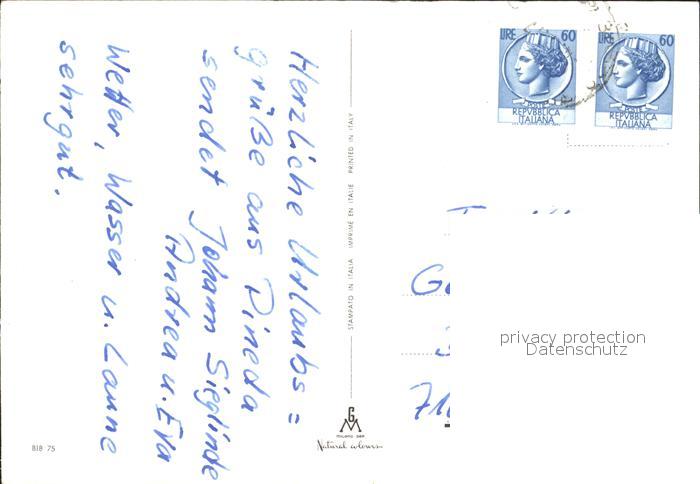 Herzliche Urlaubs =
grüße aus Pineda
sendet Johann Sieglinde
Andrea u. Eva
Wetter, Wasser u. Laune
sehr gut.
STAMPATO IN ITALIA IMPRIMÉ EN ITALIE PRINTED IN ITALY
LIRE 60
POSTE
REPVBBLICA
ITALIANA
LIRE 60
POSTE
REPVBBLICA
ITALIANA
G
privacy protection
Datenschutz
71
G M
MILANO
Natural colours
BIB 75